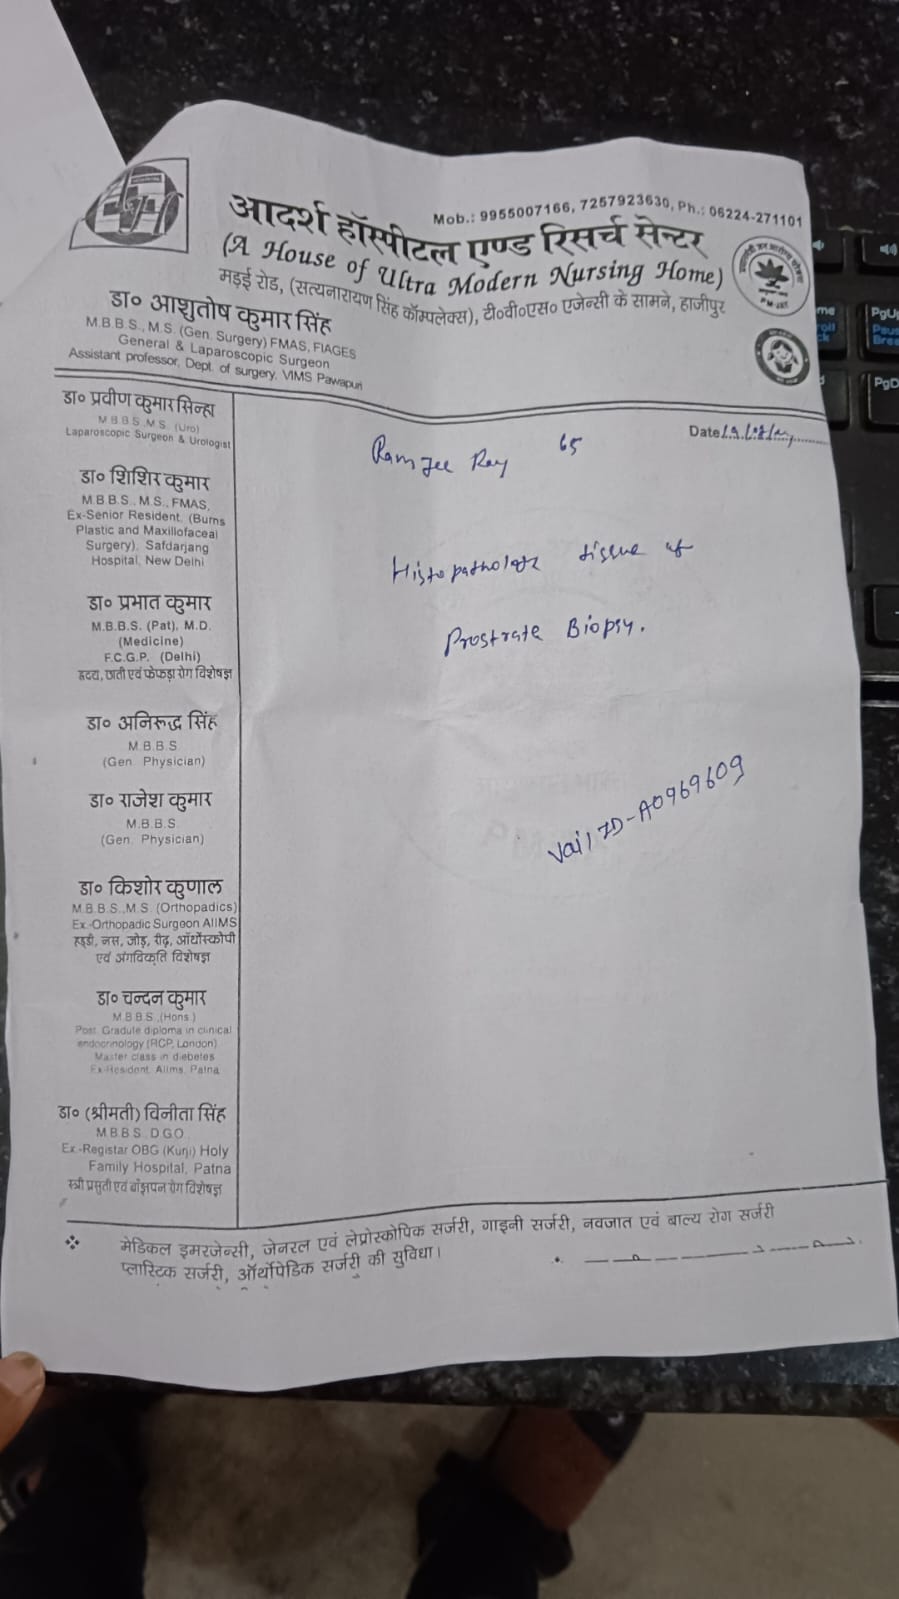 Mob.: 9955007166, 7257923630, Ph.: 06224-271101
आदर्श हॉस्पीटल एण्ड रिसर्च सेन्टर
(A House of Ultra Modern Nursing Home)
मड़ई रोड, (सत्यनारायण सिंह कॉम्पलेक्स), टी०वी०एस० एजेन्सी के सामने, हाजीपुर
PM-JAY
डा० आशुतोष कुमार सिंह
M.B.B.S., M.S. (Gen. Surgery) FMAS, FIAGES
General & Laparoscopic Surgeon
Assistant professor, Dept. of surgery, VIMS Pawapuri
Date
Ramjee Ray 65
Histopatholog tissue of
Prostrate Biopsy.
Vail ID-A0969609
डा० प्रवीण कुमार सिन्हा
M.B.B.S.,M.S. (Uro)
Laparoscopic Surgeon & Urologist
डा० शिशिर कुमार
M.B.B.S., M.S., FMAS,
Ex-Senior Resident, (Burns
Plastic and Maxillofaceal
Surgery), Safdarjang
Hospital, New Delhi
डा० प्रभात कुमार
M.B.B.S. (Pat), M.D.
(Medicine)
F.C.G.P. (Delhi)
हृदय, छाती एवं फेफड़ा रोग विशेषज्ञ
डा० अनिरूद्ध सिंह
M.B.B.S.
(Gen. Physician)
डा० राजेश कुमार
M.B.B.S.
(Gen. Physician)
डा० किशोर कुणाल
M.B.B.S.,M.S. (Orthopadics)
Ex.-Orthopadic Surgeon AIIMS
हड्डी, नस, जोड़, रीढ़, ऑर्थोस्कोपी
एवं अंगविकृति विशेषज्ञ
डा० चन्दन कुमार
M.B.B.S.,(Hons.)
Post. Gradute diploma in clinical
endocrinology (RCP, London)
Master class in diebetes
Ex-Resident, AIIms, Patna
डा० (श्रीमती) विनीता सिंह
M.B.B.S. D.G.O.
Ex.-Registar OBG (Kurji) Holy
Family Hospital, Patna
स्त्री प्रसुती एवं बाँझपन रोग विशेषज्ञ
मेडिकल इमरजेन्सी, जेनरल एवं लेप्रोस्कोपिक सर्जरी, गाइनी सर्जरी, नवजात एवं बाल्य रोग सर्जरी
प्लास्टिक सर्जरी, ऑर्थोपेडिक सर्जरी की सुविधा।